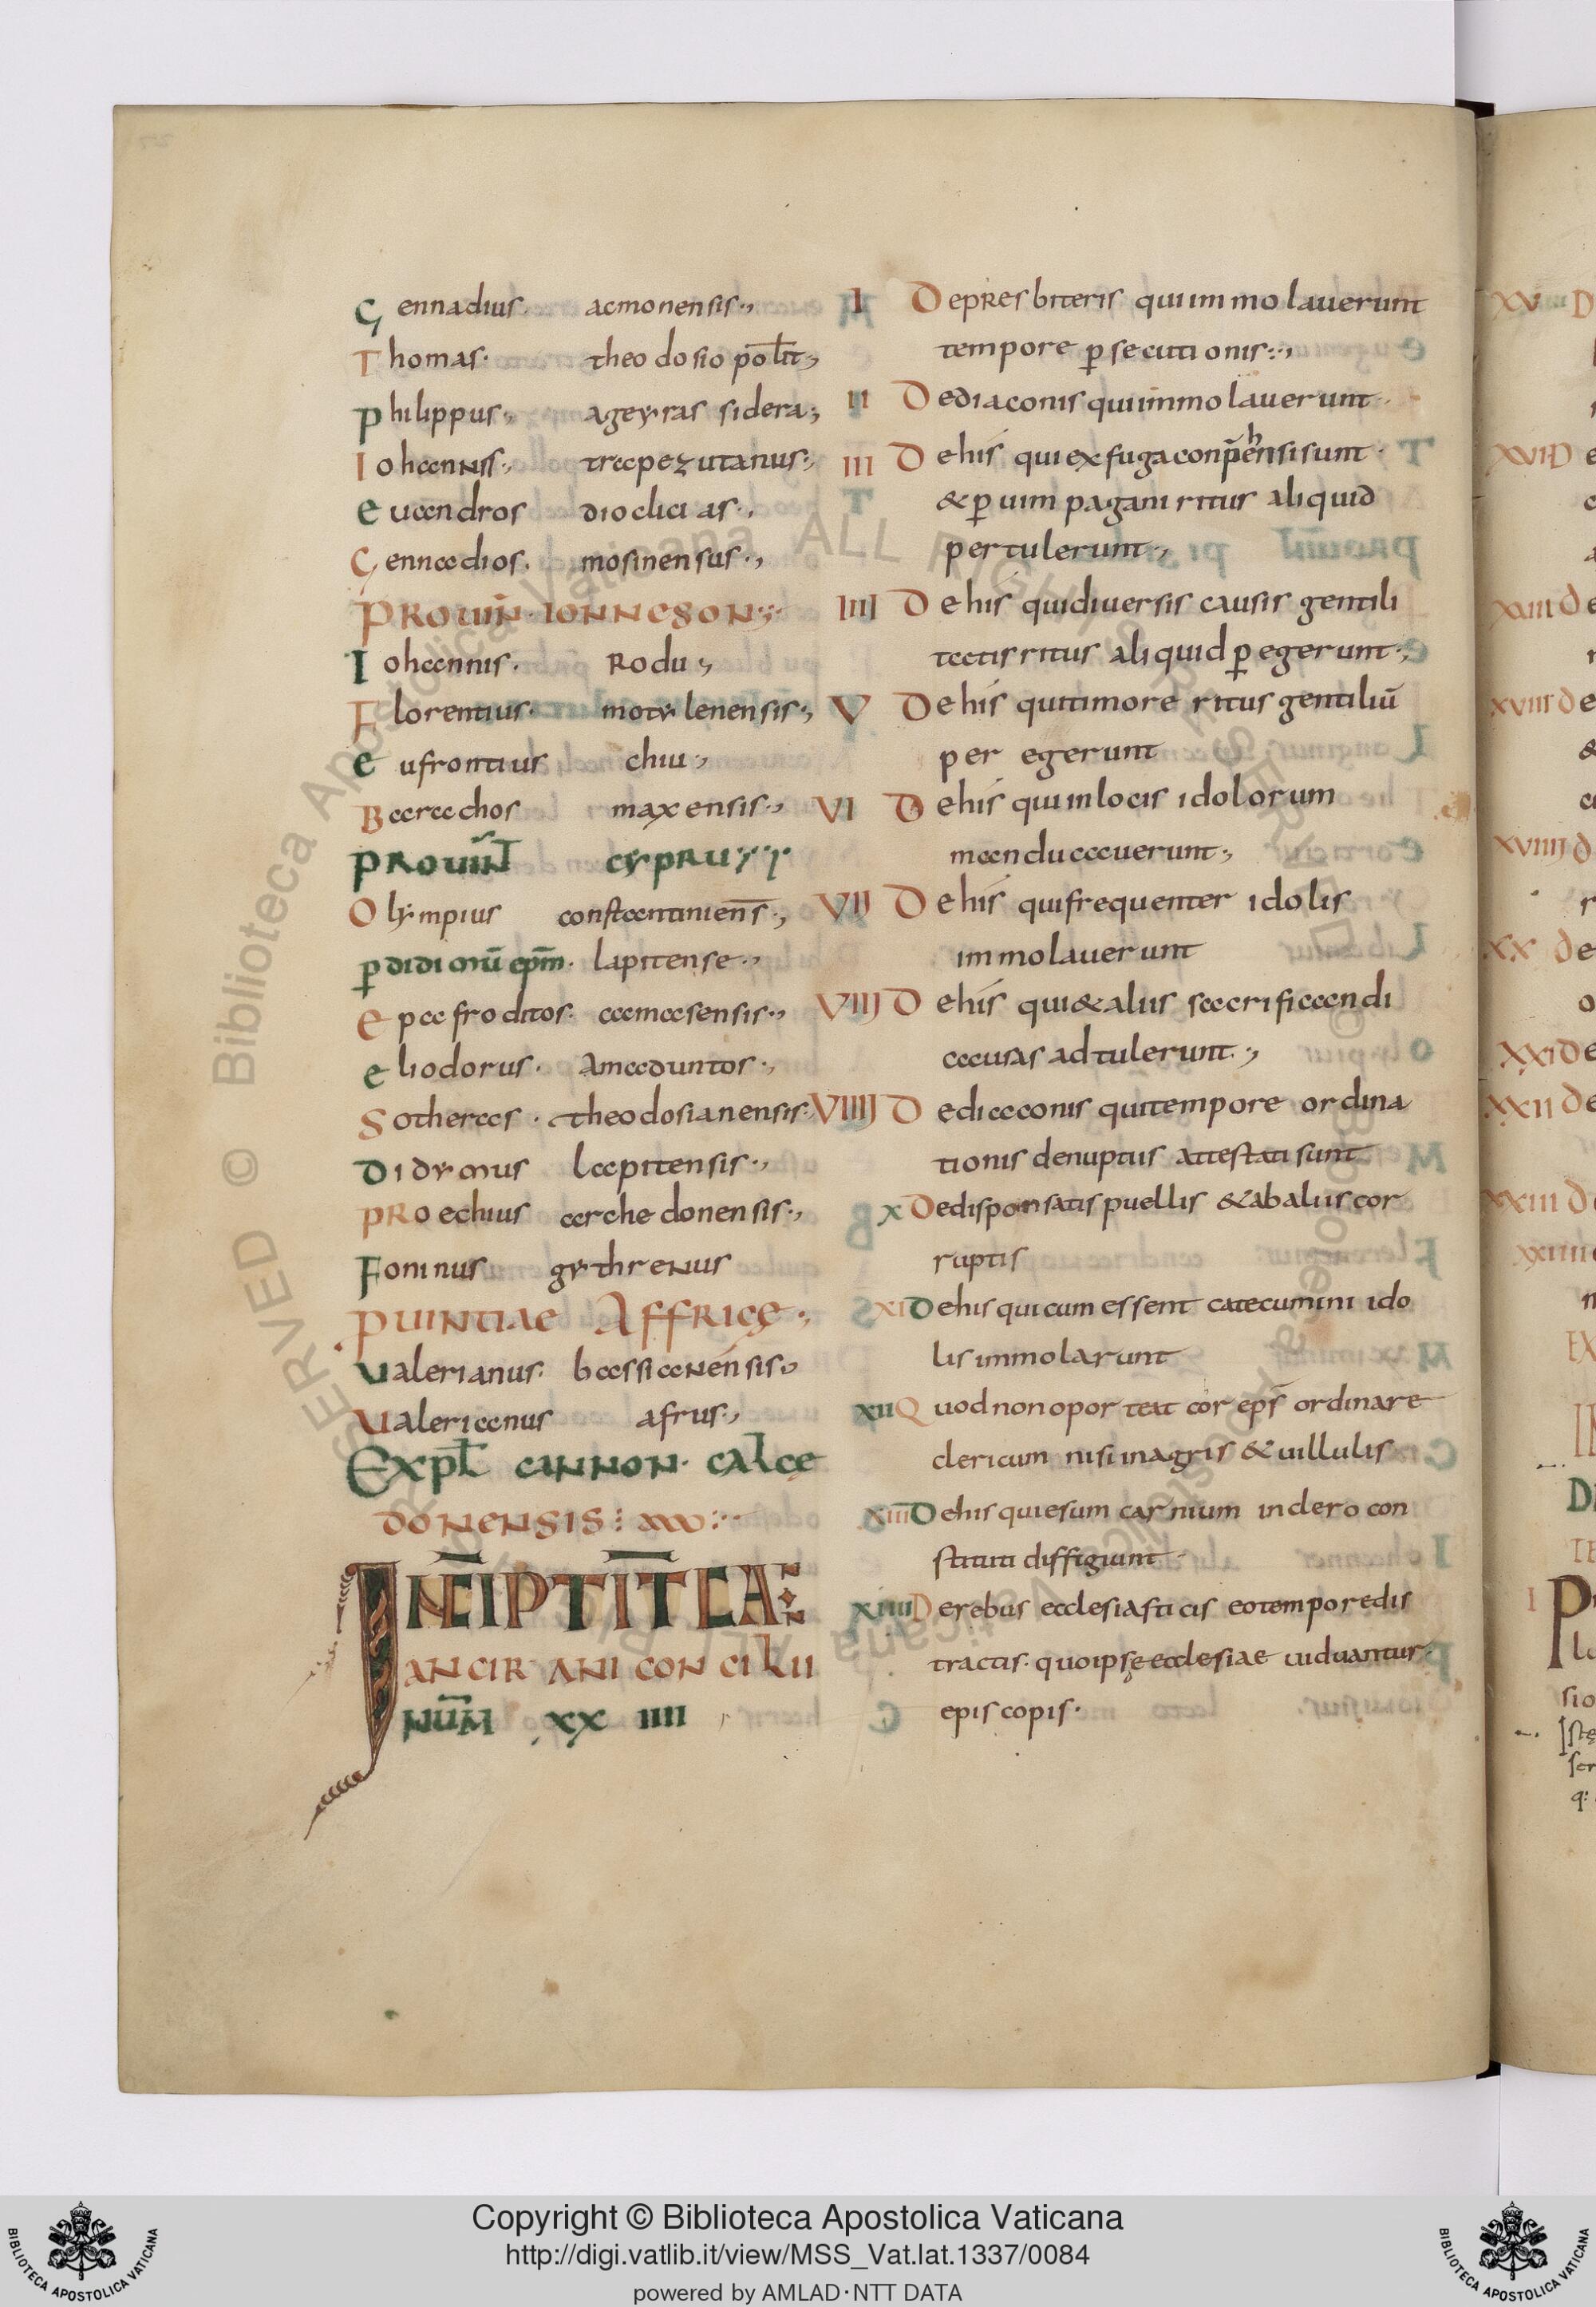 Gennadius. acmonensis.,
Thomas. theodosio pol̄it;
Philippus., ageyras sidera;
Iohannis., trapezutanus.,
euandros dioclicias.,
Gennadios. mosinensus.,
PROUIN̄. IONNESON;
Iohannis. Rodu;
Florentius. motylenensis;
eufrontius chiu;
Barachos maxensis.,
PROUIN̄T CYPRU
Olympius constantiniens̄.,
p̱ didimū ep̄m. lapitense.,
epafroditos. aamasensis.,
eliodorus. amaduntos.,
Sotheras. theodosianensis.
Didymus lapitensis.,
PROechius archedonensis.,
Foninus gythrenus
PUINTIAE AFFRICĘ.,
Ualerianus. bassianensis.,
Ualerianus afrus.,
EXPL̄ CANNON. CALCE
DONENSIS: XXV:
INC̄IPT TĪT CA
ANCIRANI CONCILII
NUM̄ XX IIII
I Depresbiteris quiimmolauerunt
tempore p̱secutionis:.,
II Dediaconis quiimmolauerunt.
III Dehis quiexfugaconp̄hensisunt.
& p̱ uim pagani ritus aliquid
pertulerunt.,
IIII Dehis quidiuersis causis gentili
tatis ritus aliquid p̱egerunt.,
V Dehis quitimore ritus gentiliū
per egerunt
VI Dehis quiinlocis idolorum
manducauerunt;
VII Dehis quifrequenter idolis
immolauerunt
VIII Dehis qui&aliis sacrificandi
causas adtulerunt.,
VIIII Dediaconis quitempore ordina
tionis denuptiis attestati sunt
X Dedisponsatis puellis &abaliis cor
ruptis
XI Dehis quicum essent catecumini ido
lis immolarunt
XII Quod non oporteat cor ep̄s ordinare
clericum nisi inagris & uillulis
XIII Dehis quiesum carnium inclero con
stituti diffigiunt
XIIII Derebus ecclesiasticis eotemporedis
tractis. quoipsę ecclesiae uiduantur
episcopis.
Copyright © Biblioteca Apostolica Vaticana
http://digi.vatlib.it/view/MSS_Vat.lat.1337/0084
powered by AMLAD·NTT DATA